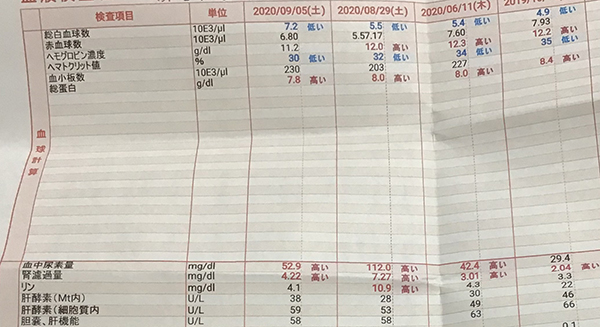 検査項目 単位 2020/09/05(土) 2020/08/29(土) 2020/06/11(木)
総白血球数 10E3/µl 7.2 低い 5.5 低い 5.4 低い 4.9 低い
赤血球数 10E3/µl 6.80 5.57.17 7.60 7.93
ヘモグロビン濃度 g/dl 11.2 12.0 高い 12.3 高い 12.2 高い
ヘマトクリット値 % 30 低い 32 低い 34 低い 35 低い
血小板数 10E3/µl 230 203 227
総蛋白 g/dl 7.8 高い 8.0 高い 8.0 高い 8.4 高い
血球計算
血中尿素量 mg/dl 52.9 高い 112.0 高い 42.4 高い 29.4
腎濾過量 mg/dl 4.22 高い 7.27 高い 3.01 高い 2.04 高い
リン mg/dl 4.1 10.9 高い 4.3 3.3
肝酵素(Mt内) U/L 38 28 30 22
肝酵素(細胞質内 U/L 59 53 49 46
胆嚢、肝機能 U/L 58 58 63 66
0.1